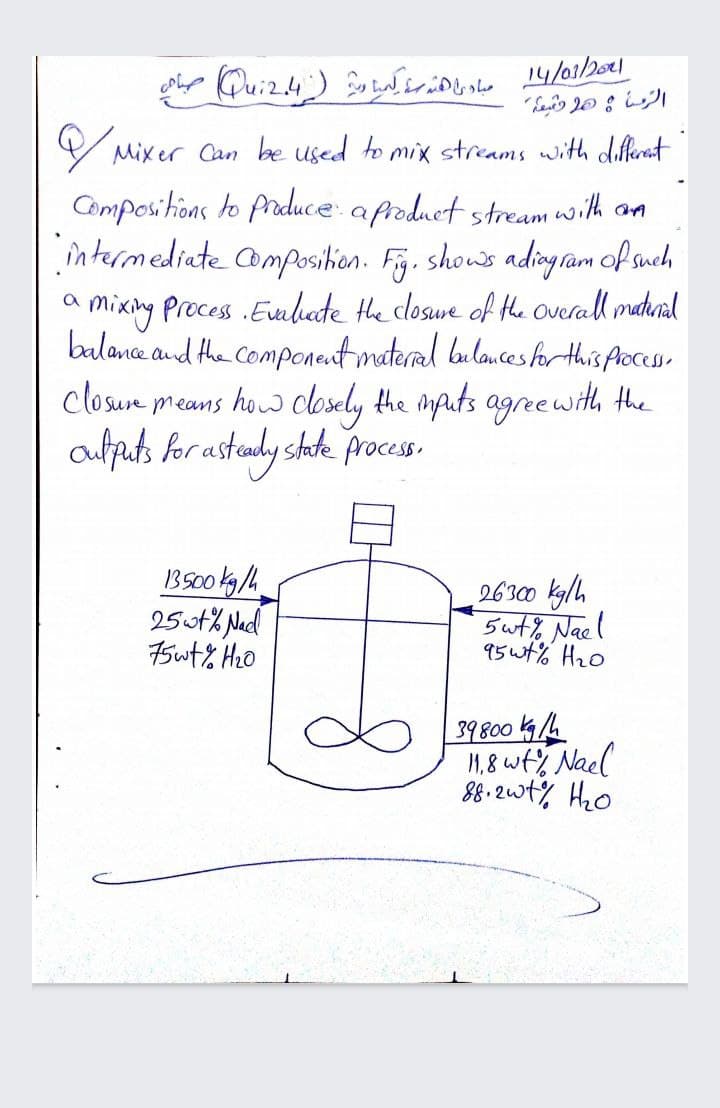 14/03/2021
صباحي (Quiz.4) مبادئ هندسة كيمياوية
الزمن : 20 دقيقة
Q/ Mixer can be used to mix streams with different
Compositions to produce a product stream with an
intermediate composition. Fig. shows a diagram of such
a mixing process. Evaluate the closure of the overall material
balance and the component material balances for this process.
Closure means how closely the inputs agree with the
outputs for a steady state process.
13500 kg/h
25wt% Nacl
75wt% H₂O
26300 kg/h
5wt% Nacl
95wt% H₂O
39800 kg/h
11,8 wt% Nacl
88.2wt% H₂O